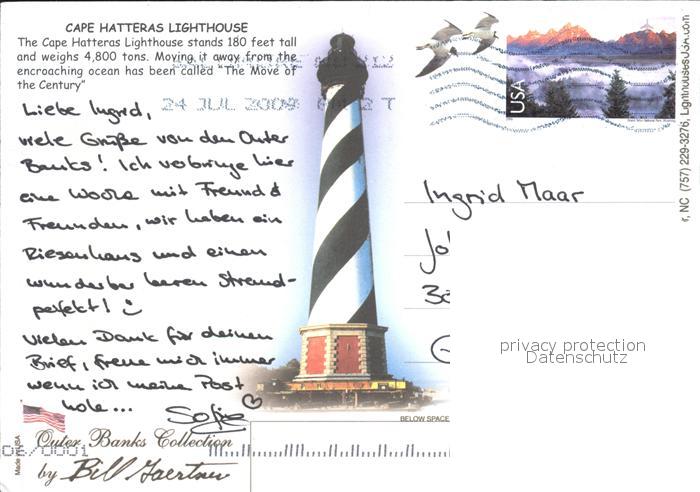 CAPE HATTERAS LIGHTHOUSE
The Cape Hatteras Lighthouse stands 180 feet tall
and weighs 4,800 tons. Moving it away from the
encroaching ocean has been called "The Move of
the Century"
24 JUL 2009
Liebe Ingrid,
viele Grüße von den Outer
Banks! Ich verbringe hier
eine Woche mit Freund &
Freunden, wir haben ein
Riesenhaus und einen
wunderbar leeren Strand-
perfekt!
Vielen Dank für deinen
Brief, freue mich immer
wenn ich meine Post
hole...
Sofie
Made in USA
Outer Banks Collection
by Bill Gaertner
BELOW SPACE
USA
Ingrid Maar
privacy protection
Datenschutz
, NC (757) 229-3276, LighthousesUSA.com